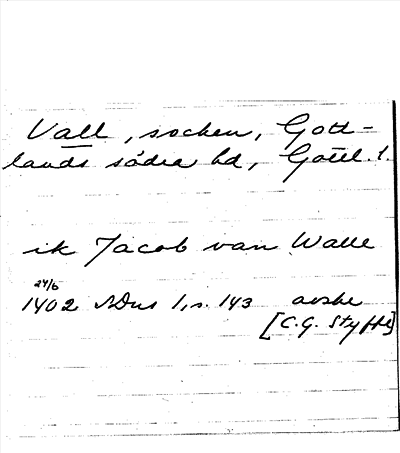 Vall, socken, Gott-
lands södra hd, Gotl. l.
ik Jacob van Walle
24/6
1402 SDns 1, s. 143 avskr
[C.G. Styffe]